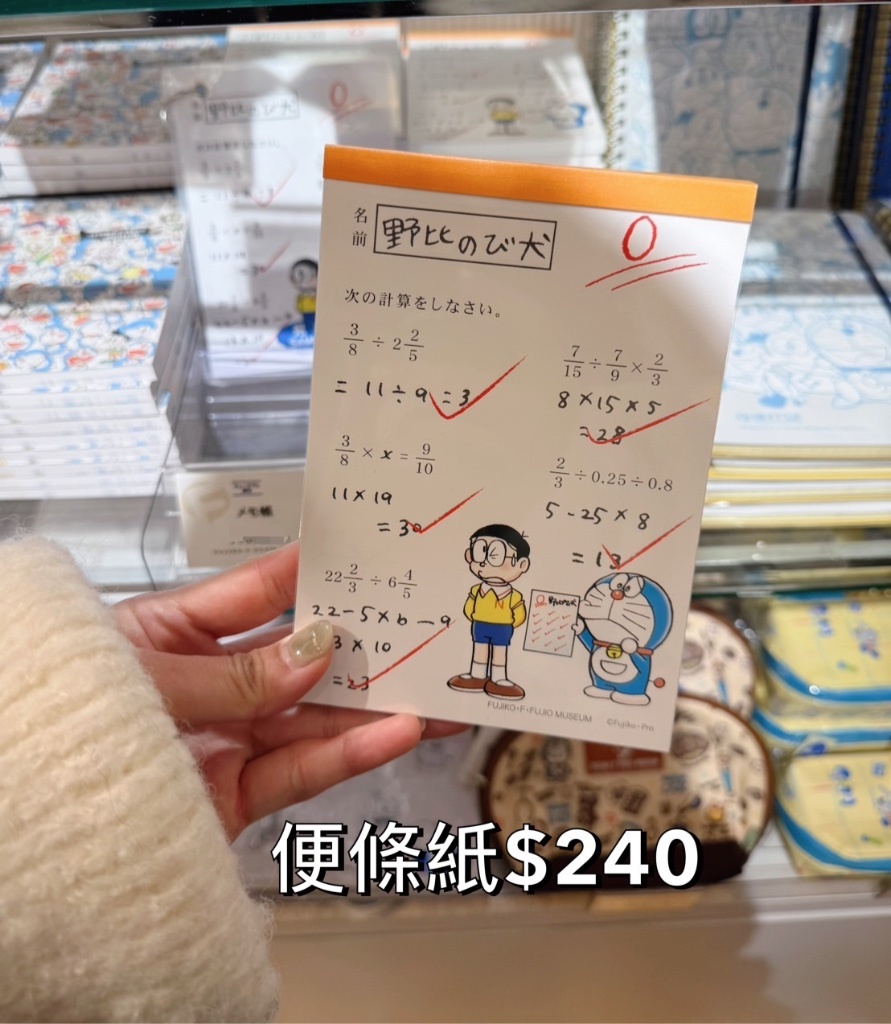 名前 野比のび犬
0
次の計算をしなさい。
3/8 ÷ 2 2/5
= 11÷9 = 3
3/8 × x = 9/10
11×19
= 30
22 2/3 ÷ 6 4/5
22-5×6-9
3×10
=23
7/15 ÷ 7/9 × 2/3
8×15×5
=28
2/3 ÷ 0.25 ÷ 0.8
5-25×8
=13
FUJIKO・F・FUJIO MUSEUM ©Fujiko-Pro
野比のび犬
0
メモ帳
便條紙$240